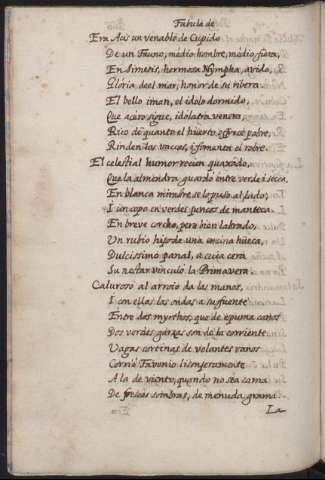 Fabula de
Era Acis un venablo de Cupido
De un Fauno, medio hombre, medio fiera,
En Simetis, hermosa Nympha, avido,
Gloria del mar, honor de su ribera.
El bello iman, el idolo dormido,
Que acero sigue, idolatra venera
Rico de quanto el huerto ofrece pobre,
Rinden las vaccas, i fomenta el robre.
El celestial humor recien quaxado,
Que la almendra guardò entre verde i seca,
En blanca mimbre se lo puso al lado;
I un copo en verdes juncos de manteca.
En breve corcho, pero bien labrado,
Un rubio hijo de una encina hueca,
Dulcissimo panal, a cuia cera
Su nectar vinculò la Primavera
Caluroso al arroio da las manos,
I con ellas las ondas a su fuente
Entre dos myrthos, que de espuma canos
Dos verdes garças son de la corriente
Vagas cortinas de volantes vanos
Corrió Favonio lisongeramente
A la de viento, quando no sea cama
De frescas sombras, de menuda grama
La